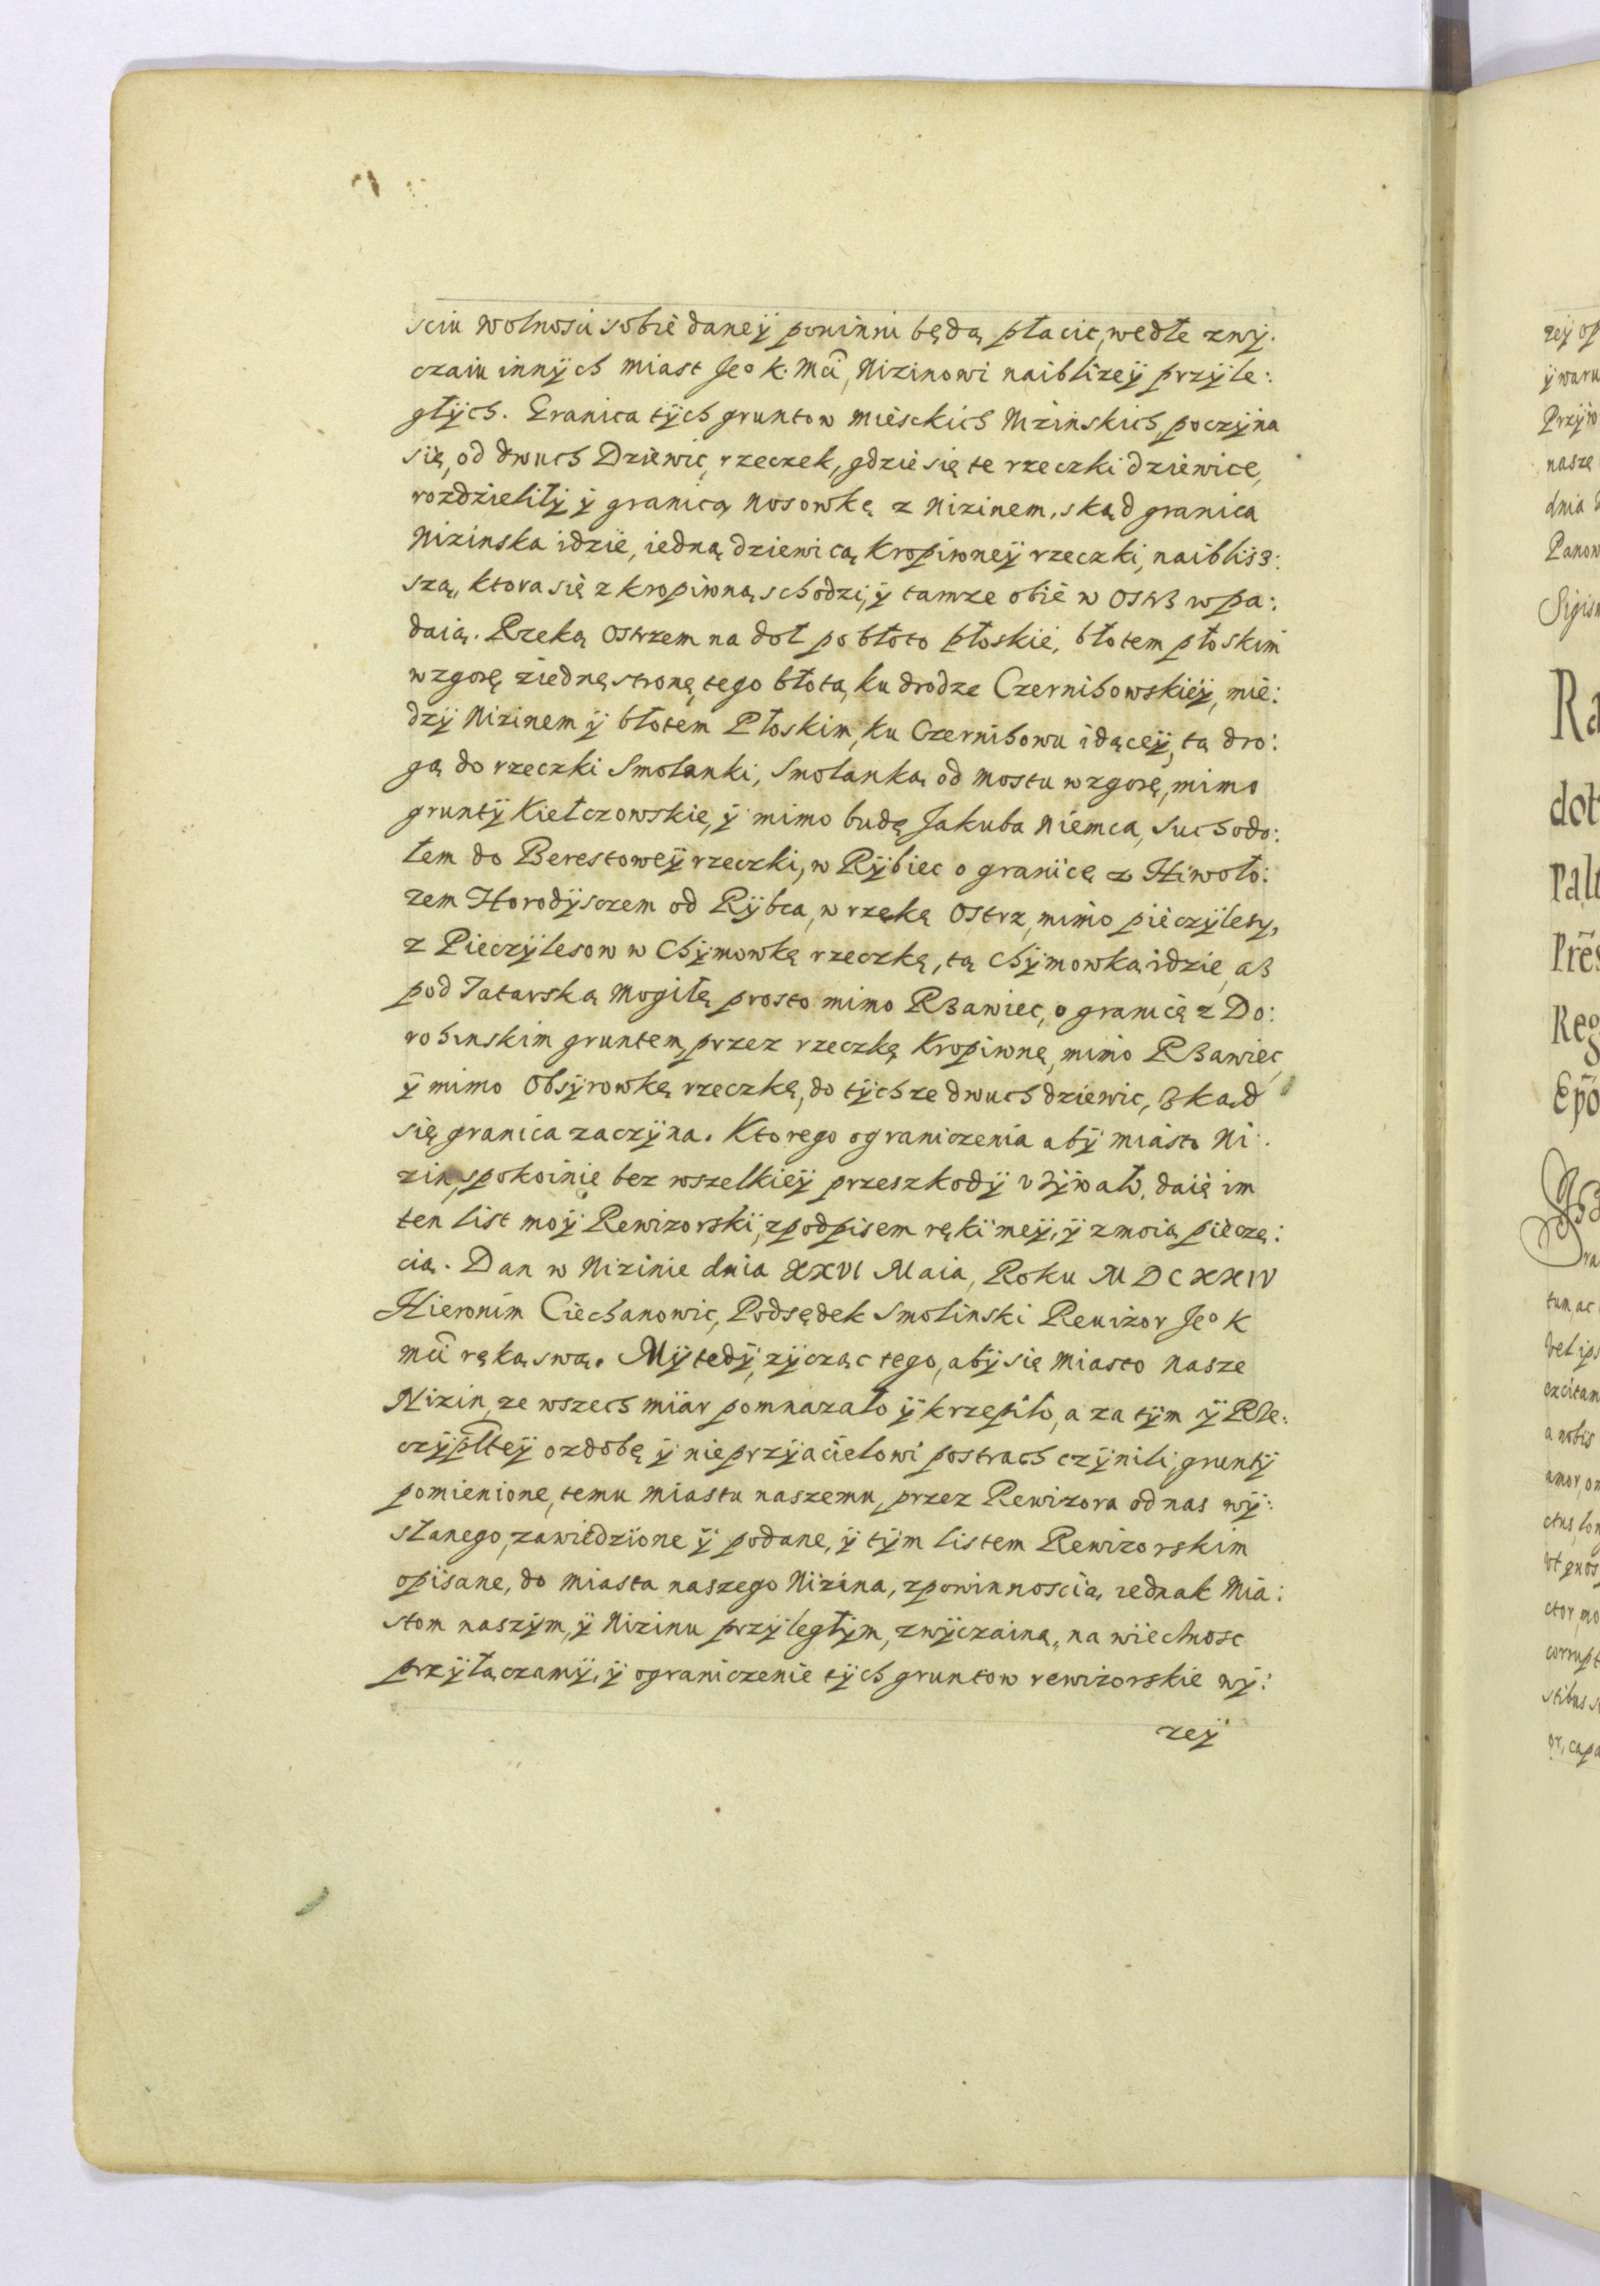 sciu wolnosci sobie daneÿ powinni będą płacic, wedłe zwÿ:
czaiu innÿch Miast Je° K. Mći, Nizinowi naiblizeÿ przÿle:
głÿch. Granica tÿch gruntow Miesckich Nizinskich, poczÿna
się, od dwuch Dziewic, rzeczek, gdzie się te rzeczki dziewice,
rozdzieliłÿ ÿ granicą Nosowkę z Nizinem, skąd granica
Nizinska idzie, iedną dziewicą Kropiwneÿ rzeczki, naibliз:
szą, ktora się z kropiwną schodzi, ÿ tamze obie w Ostrз wpa:
daią. Rzeką Ostrzem na doł po błoto płoskie, błotem płoskim
wzgorę ziednę stronę tego błota, ku drodze Czernihowskieÿ, mie:
dzÿ Nizinem ÿ błotem Płoskim, ku Czernihowu idąceÿ, tą dro:
gą do rzeczki Smolanki, Smolanką od Mostu wzgorę, mimo
gruntÿ Kiełczowskie, ÿ mimo budę Jakuba Niemca, Suchodo:
łem do Berestoweÿ rzeczki, w Rÿbiec o granicę z Hiwoło:
zem Horodÿsczem od Rÿbca, w rzekę Ostrz, mimo pieczÿlesy,
z Pieczÿlesow w Chÿmowkę rzeczkę, tą Chÿmowką idzie, aз
pod Tatarską Mogiłę prosto mimo Rзawiec, o granicę z Do:
rohinskim gruntem, przez rzeczkę Kropiwnę, mimo Rзawiec,
ÿ mimo Obsÿrowkę rzeczkę, do tÿchze dwuch dziewic, зkąd
się granica zaczÿna. Ktorego ograniczenia abÿ miasto Ni:
zin, spokoinie bez wszelkieÿ przeszkodÿ uзÿwało, daię im
ten list moÿ Rewizorskÿ, zpodpisem ręki meÿ, ÿ z moią pieczę:
cią. Dan w Nizinie dnia XXVI Maia, Roku MDCXXIV
Hieronim Ciechanowic, Podsędek Smolinski Rewizor Je° K
Mći ręką swą. Mÿ tedÿ, zÿcząc tego, abÿ się Miasto Nasze
Nizin, ze wszech miar pomnazało ÿ krzepiło, a za tÿm ÿ Rze:
czÿplteÿ ozdobę ÿ nieprzÿacielowi postrach czÿnili, gruntÿ
pomienione, temu Miastu naszemu, przez Rewizora od nas wÿ:
słanego, zawiedzione ÿ podane, ÿ tÿm listem Rewizorskim
opisane, do Miasta naszego Nizina, zpowinnoscią iednak Mia:
stom naszÿm, ÿ Nizinu przÿległÿm, zwÿczainą, na wiecznosc
przÿłączamÿ, ÿ ograniczenie tÿch gruntow rewizorskie wÿ:
zeÿ
zeÿ
ÿ waru
Przÿw
nasze
dnia
Panow
Sigism
Ra
dot
Palt
Prēs
Reg
Epō
tum, ac
vel ips
excitan
a nobis
amor, on
ctus, lon
vt gnos
ctor, mo
corrupt
stibus s
or, capa